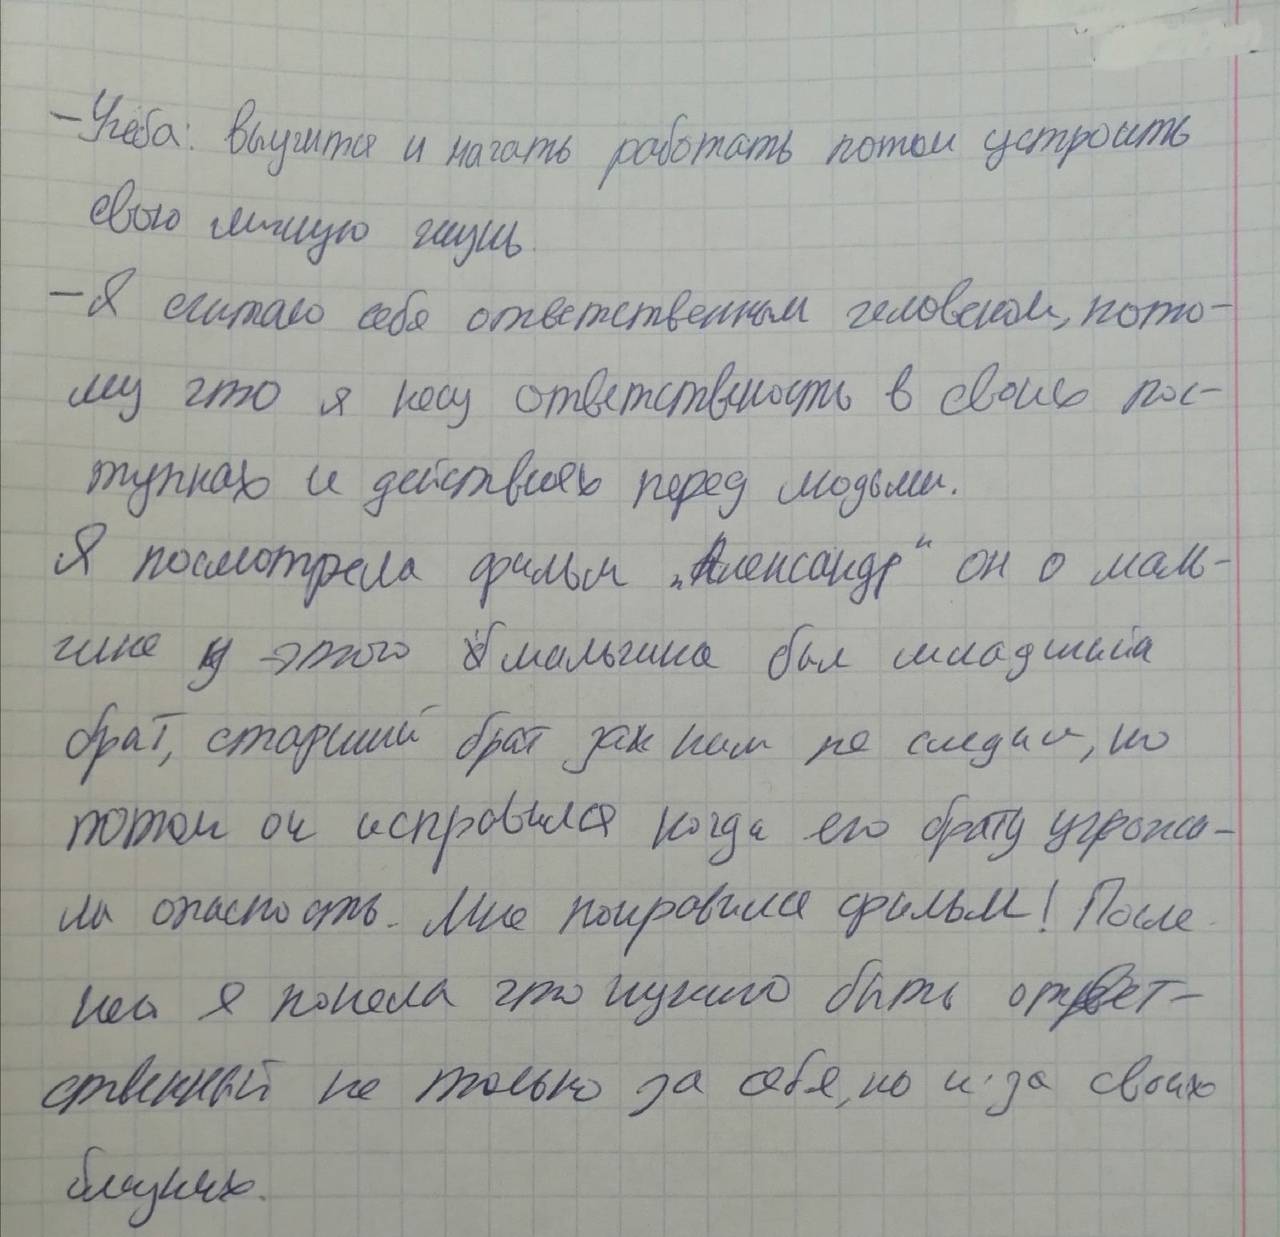 - Учёба: выучится и начать работать потом устроить
свою личную жизнь.
- Я считаю себя ответственным человеком, пото-
му что я несу ответственость в своих пос-
тупках и действиях перед людьми.
Я посмотрела фильм „Александр“ он о маль-
чике у этого мальчика был младший
брат, старший брат за ним не следил, но
потом он исправился когда его брату угрожа-
ла опасность. Мне понравился фильм! После
него я поняла что нужно быть ответ-
ственный не только за себя, но и за своих
близких.